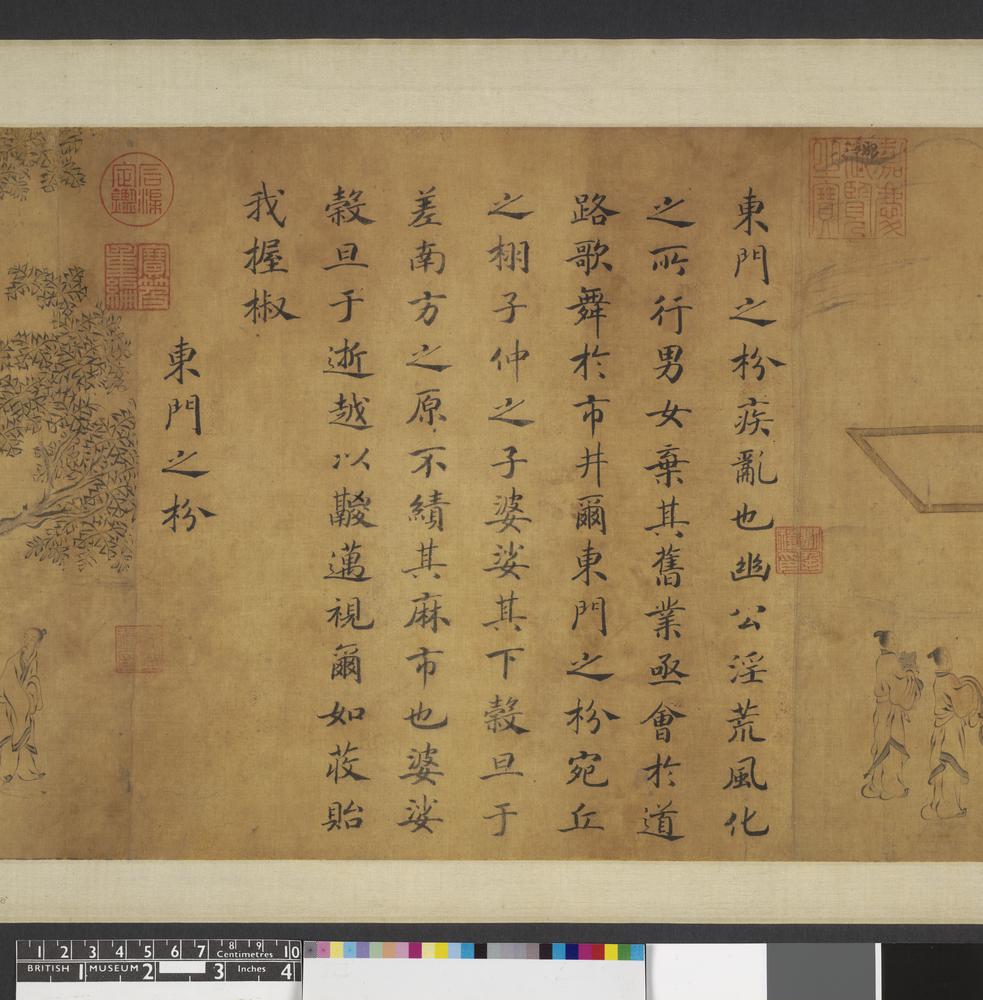 東門之枌疾亂也幽公淫荒風化
之所行男女棄其舊業亟會於道
路歌舞於市井爾東門之枌宛丘
之栩子仲之子婆娑其下穀旦于
差南方之原不績其麻市也婆娑
穀旦于逝越以鬷邁視爾如荍貽
我握椒
東門之枌
石渠定鑑
寶笈重編
嘉慶御覽之寶
1 2 3 4 5 6 7 8 9 10
Centimetres
BRITISH MUSEUM
1 2 3 4
Inches